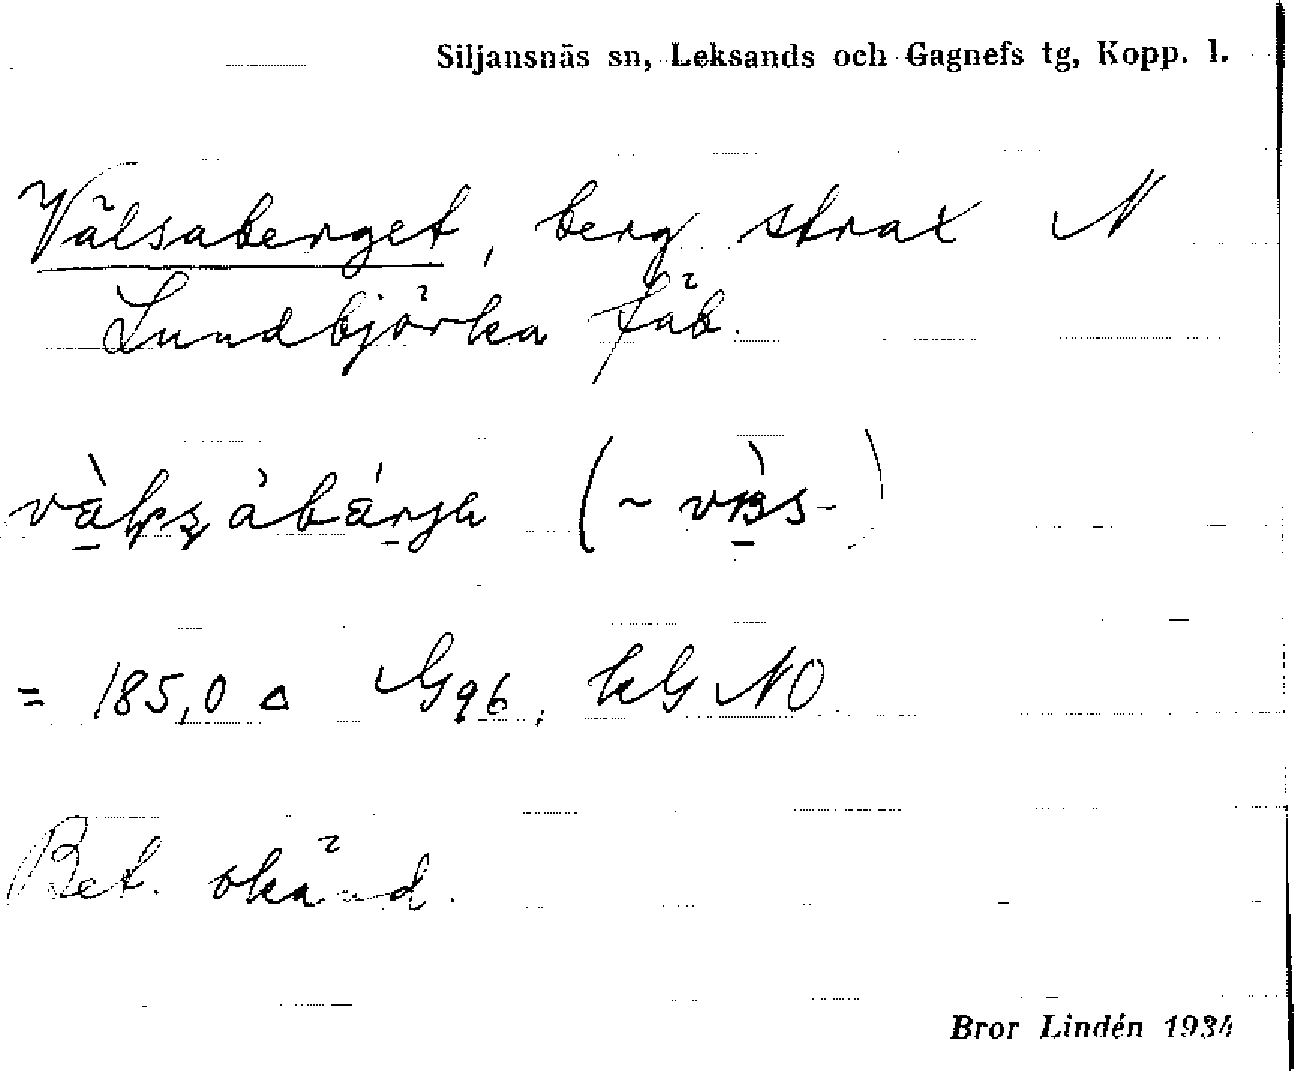 Siljansnäs sn, Leksands och Gagnefs tg, Kopp. l.
Välsaberget, berg strax N
Lundbjörka fäb.
= 185,0 △ Gg6, kG NO
Bet. okänd.
Bror Lindén 1934